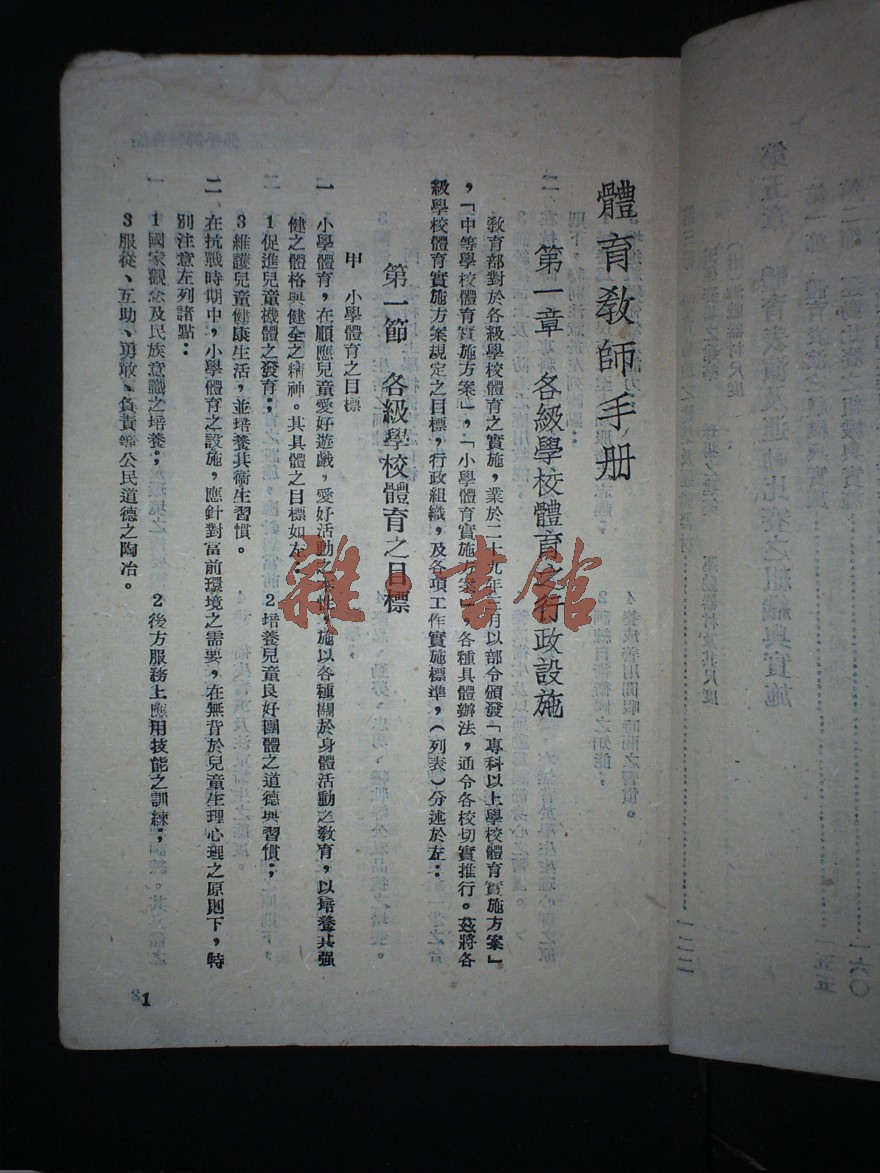 體育教師手册
第一章 各級學校體育之行政設施
教育部對於各級學校體育之實施,業於二十九年 月以部令頒發「專科以上學校體育實施方案」
,「中等學校體育實施方案」,「小學體育實施方案」,各種具體辦法,通令各校切實推行。茲將各
級學校體育實施方案規定之目標,行政組織,及各項工作實施標準,(列表)分述於左:
第一節 各級學校體育之目標
甲 小學體育之目標
一 小學體育,在順應兒童愛好遊戲,愛好活動之本性,施以各種關於身體活動之敎育,以培養其强
健之體格與健全之精神。其具體之目標如左:
1促進兒童機體之發育; 2培養兒童良好團體之道德與習慣;
3維護兒童健康生活,並培養其衛生習慣。
二 在抗戰時期中,小學體育之設施,應針對當前環境之需要,在無背於兒童生理心理之原則下,特
別注意左列諸點:
1國家觀念及民族意識之培養; 2後方服務上應用技能之訓練;
3服從、互助、勇敢、負責等公民道德之陶冶。
1
雜·書館